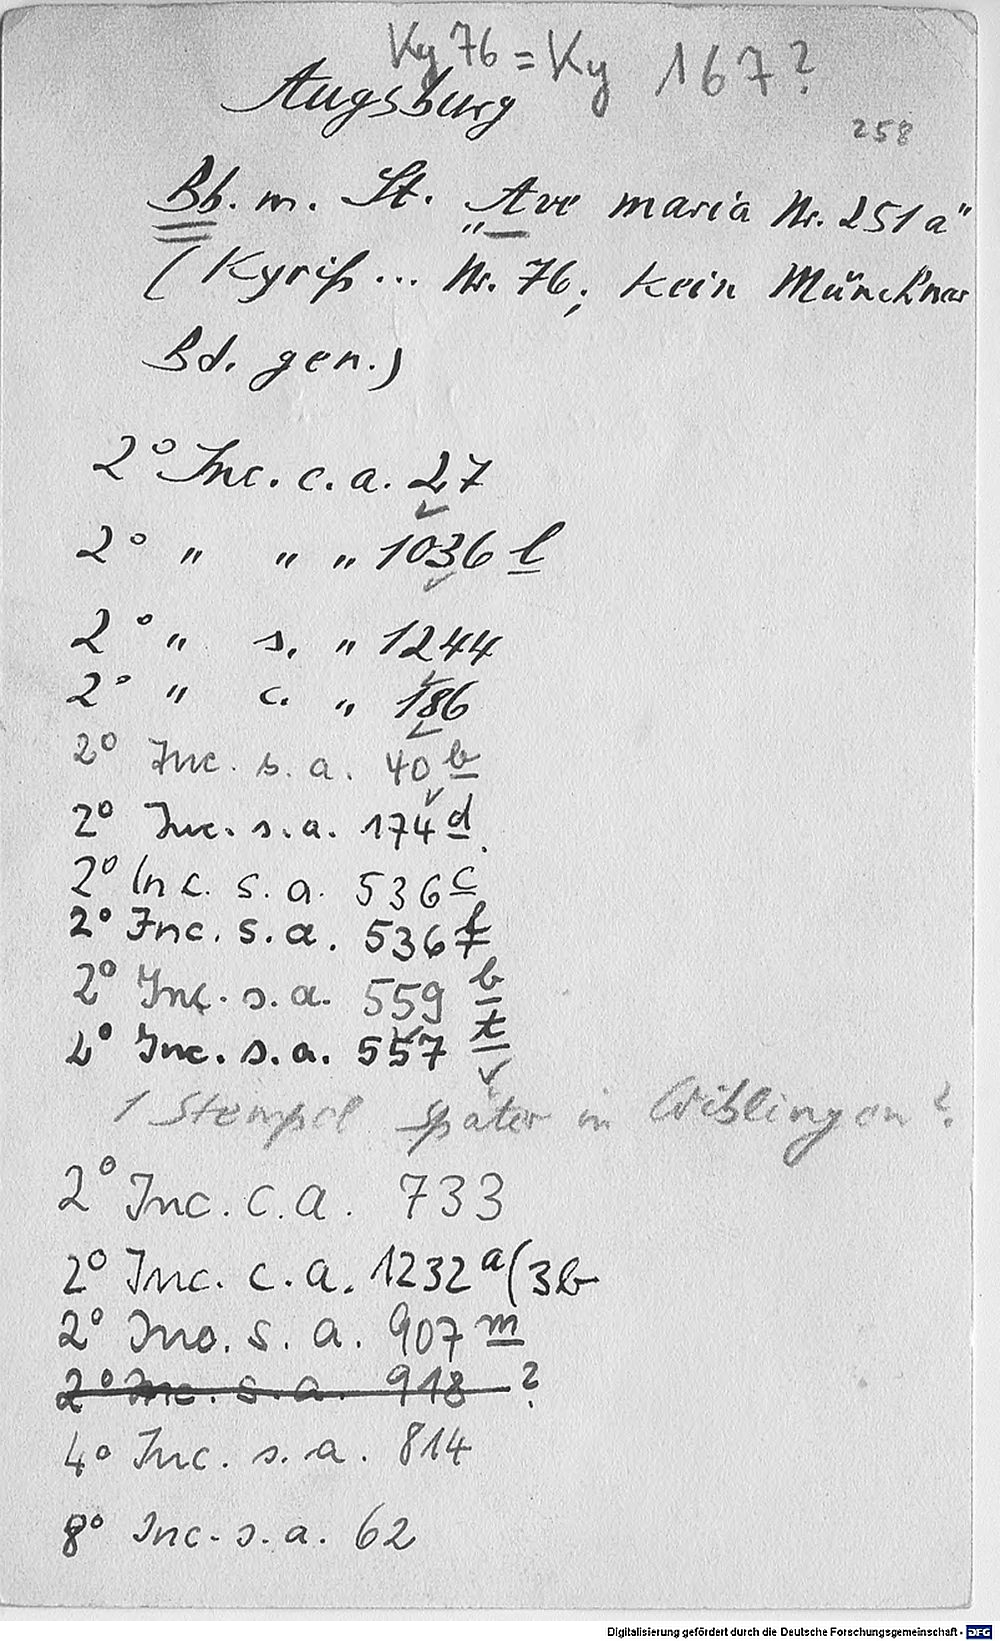 Ky 76 = Ky 167?
Augsburg
258
Bb. m. St. „Ave maria Nr. 251a"
(Kyriß... Nr. 76; kein Münchner
Bd. gen.)
2° Inc. c. a. 27
2° " " " 1036 l
2° " s. " 1244
2° " c. " 186
2° Inc. s. a. 40 b
2° Inc. s. a. 174 d
2° Inc. s. a. 536 c
2° Inc. s. a. 536 f
2° Inc. s. a. 559 b
2° Inc. s. a. 557 t
1 Stempel später in Wiblingen?
2° Inc. c. a. 733
2° Inc. c. a. 1232 a(3b
2° Inc. s. a. 907 m
2° Inc. s. a. 918 ?
4° Inc. s. a. 814
8° Inc. s. a. 62
Digitalisierung gefördert durch die Deutsche Forschungsgemeinschaft - DFG